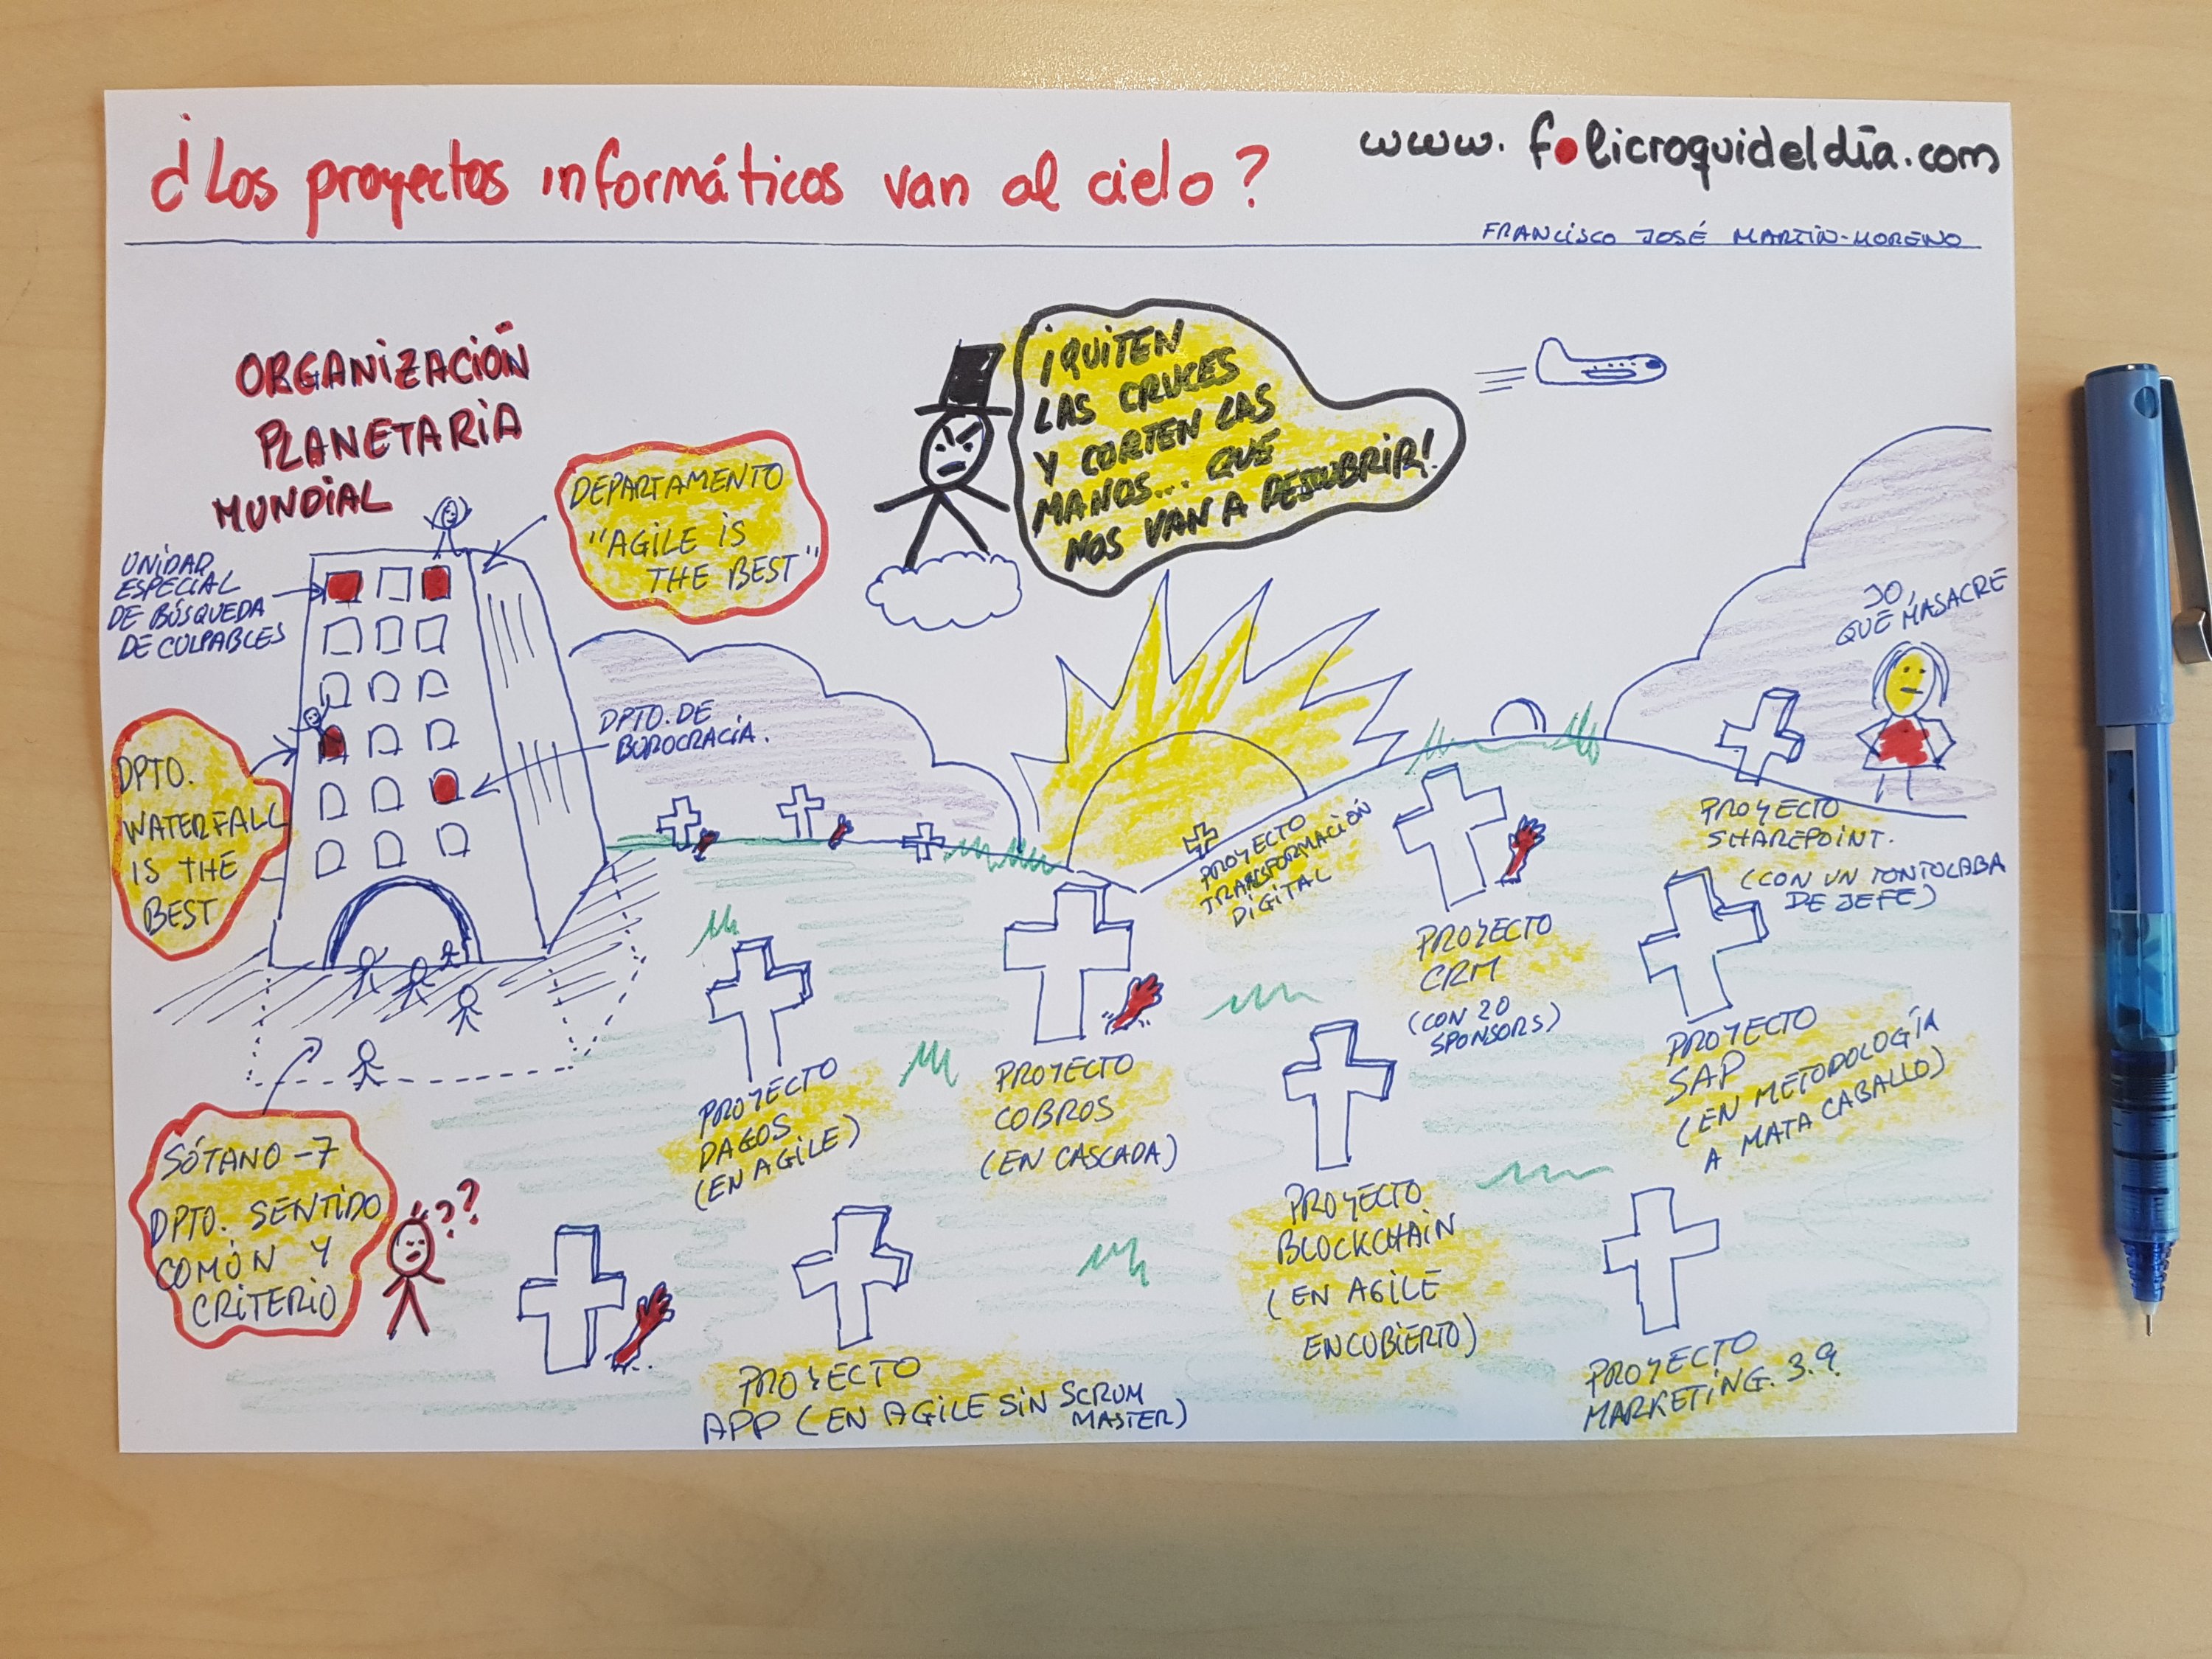 ¿Los proyectos informáticos van al cielo?
www.folicroquideldía.com
FRANCISCO JOSÉ MARTÍN-MORENO
ORGANIZACIÓN
PLANETARIA
MUNDIAL
DEPARTAMENTO
"AGILE IS
THE BEST"
¡QUITEN
LAS CRUCES
Y CORTEN LAS
MANOS... QUE
NOS VAN A DESCUBRIR!
UNIDAD
ESPECIAL
DE BÚSQUEDA
DE CULPABLES
JO,
QUÉ MASACRE
DPTO. DE
BUROCRACIA.
DPTO.
WATERFALL
IS THE
BEST
PROYECTO
TRANSFORMACIÓN
DIGITAL
PROYECTO
SHAREPOINT.
(CON UN TONTOLABA
DE JEFE)
PROYECTO
CRM
(CON 20
SPONSORS)
PROYECTO
SAP
(EN METODOLOGÍA
A MATA CABALLO)
PROYECTO
PAGOS
(EN AGILE)
PROYECTO
COBROS
(EN CASCADA)
SÓTANO -7
DPTO. SENTIDO
COMÚN Y
CRITERIO
???
PROYECTO
BLOCKCHAIN
(EN AGILE
ENCUBIERTO)
PROYECTO
APP (EN AGILE SIN SCRUM
MASTER)
PROYECTO
MARKETING. 3.9